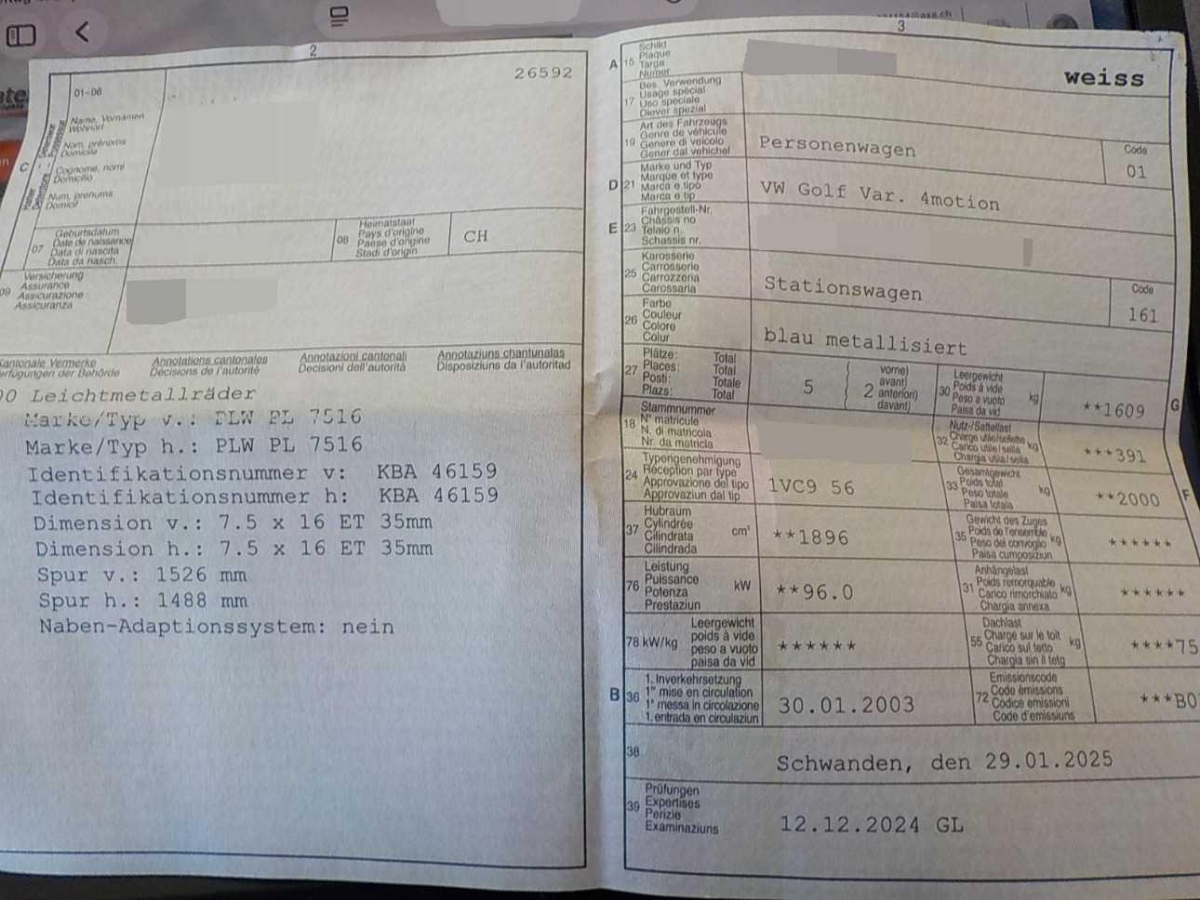 2
26592
01-06
Name, Vornamen
Wohnort
Nom, prénoms
Domicile
Cognome, nomi
Domicilio
Num, prenums
Domicil
C
07
Geburtsdatum
Date de naissance
Data di nascita
Data da nasch.
08
Heimatstaat
Pays d'origine
Paese d'origine
Stadi d'origin
CH
09
Versicherung
Assurance
Assicurazione
Assicuranza
Kantonale Vermerke
Verfügungen der Behörde
Annotations cantonales
Décisions de l'autorité
Annotazioni cantonali
Decisioni dell'autorità
Annotaziuns chantunalas
Disposiziuns da l'autoritad
Leichtmetallräder
Marke/Typ v.: PLW PL 7516
Marke/Typ h.: PLW PL 7516
Identifikationsnummer v: KBA 46159
Identifikationsnummer h: KBA 46159
Dimension v.: 7.5 x 16 ET 35mm
Dimension h.: 7.5 x 16 ET 35mm
Spur v.: 1526 mm
Spur h.: 1488 mm
Naben-Adaptionssystem: nein
3
A 15
Schild
Plaque
Targa
Numer
weiss
17
Bes. Verwendung
Usage spécial
Uso speciale
Diever spezial
19
Art des Fahrzeugs
Genre de véhicule
Genere di veicolo
Gener dal vehichel
Personenwagen
Code
01
D 21
Marke und Typ
Marque et type
Marca e tipo
Marca e tip
VW Golf Var. 4motion
E 23
Fahrgestell-Nr.
Châssis no
Telaio n.
Schassis nr.
25
Karosserie
Carrosserie
Carrozzeria
Carossaria
Stationswagen
Code
161
26
Farbe
Couleur
Colore
Colur
blau metallisiert
27
Plätze: Total
Places: Total
Posti: Totale
Plazs: Total
5
2
vorne)
avant)
anteriori)
davant)
30
Leergewicht
Poids à vide
Peso a vuoto
Paisa da vid
kg
**1609
G
18
Stammnummer
N° matricule
N. di matricola
Nr. da matricla
32
Nutz-/Sattellast
Charge utile/sellette
Carico utile/sella
Chargia utila/sella
kg
***391
24
Typengenehmigung
Réception par type
Approvazione del tipo
Approvaziun dal tip
1VC9 56
33
Gesamtgewicht
Poids total
Peso totale
Paisa totala
kg
**2000
F
37
Hubraum
Cylindrée
Cilindrata
Cilindrada
cm³
**1896
35
Gewicht des Zuges
Poids de l'ensemble
Peso del convoglio
Paisa cumposiziun
kg
******
76
Leistung
Puissance
Potenza
Prestaziun
kW
**96.0
31
Anhängelast
Poids remorquable
Carico rimorchiato
Chargia annexa
kg
******
78 kW/kg
Leergewicht
poids à vide
peso a vuoto
paisa da vid
******
55
Dachlast
Charge sur le toit
Carico sul tetto
Chargia sin il tetg
kg
****75
B 36
1. Inverkehrsetzung
1re mise en circulation
1a messa in circolazione
1. entrada en circulaziun
30.01.2003
72
Emissionscode
Code émissions
Codice emissioni
Code d'emissiuns
***B0
38
Schwanden, den 29.01.2025
39
Prüfungen
Expertises
Perizie
Examinaziuns
12.12.2024 GL